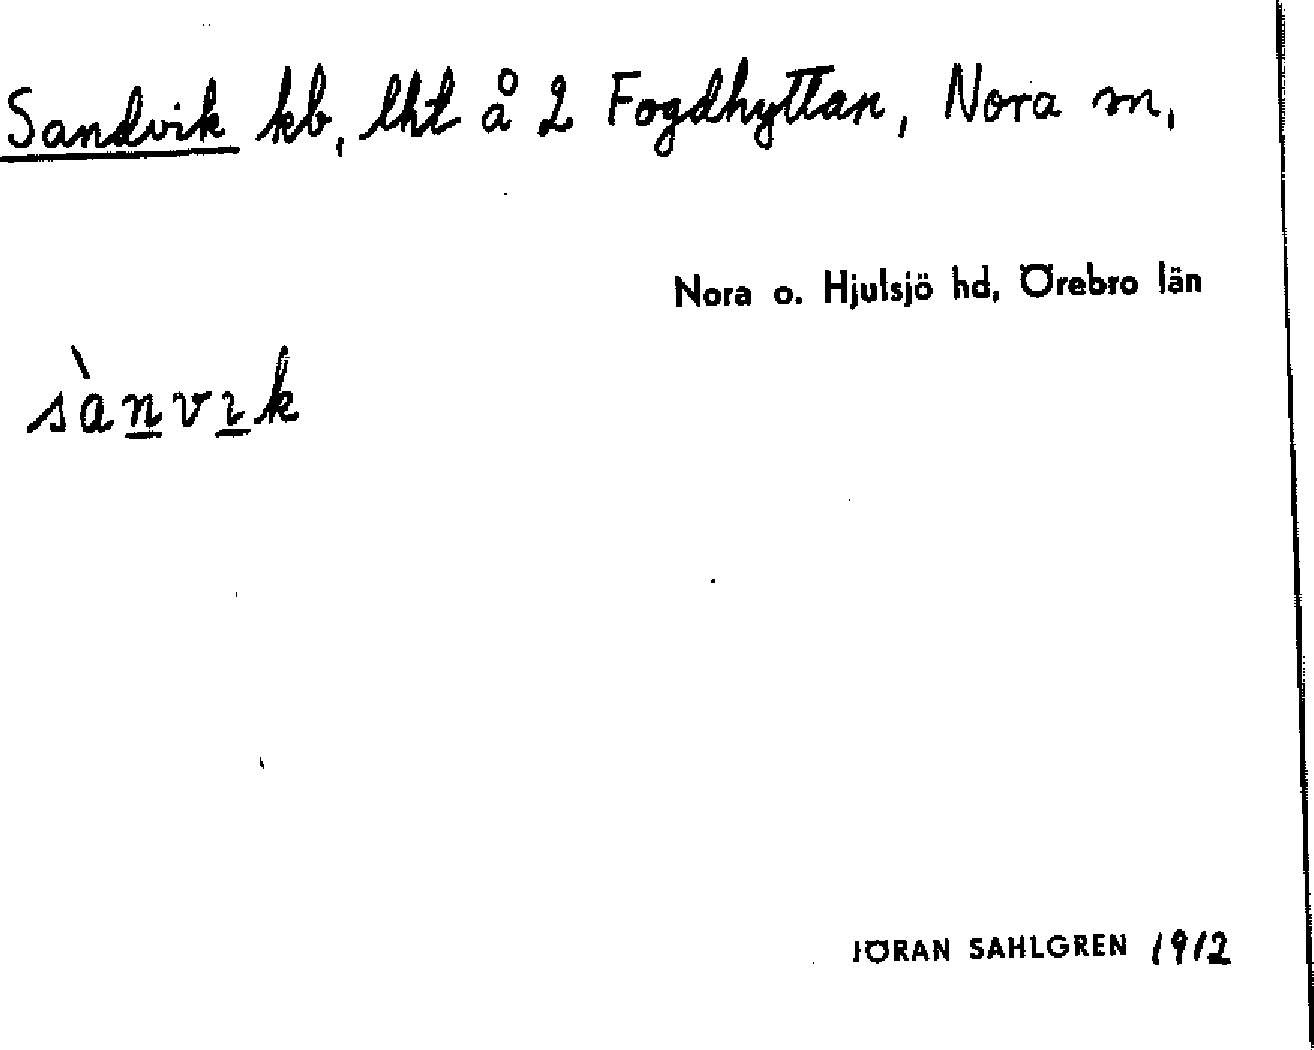 Sandvik kb, lht å 2 Fogdhyttan, Nora m,
Nora o. Hjulsjö hd, Örebro län
sànvık
JÖRAN SAHLGREN 1912